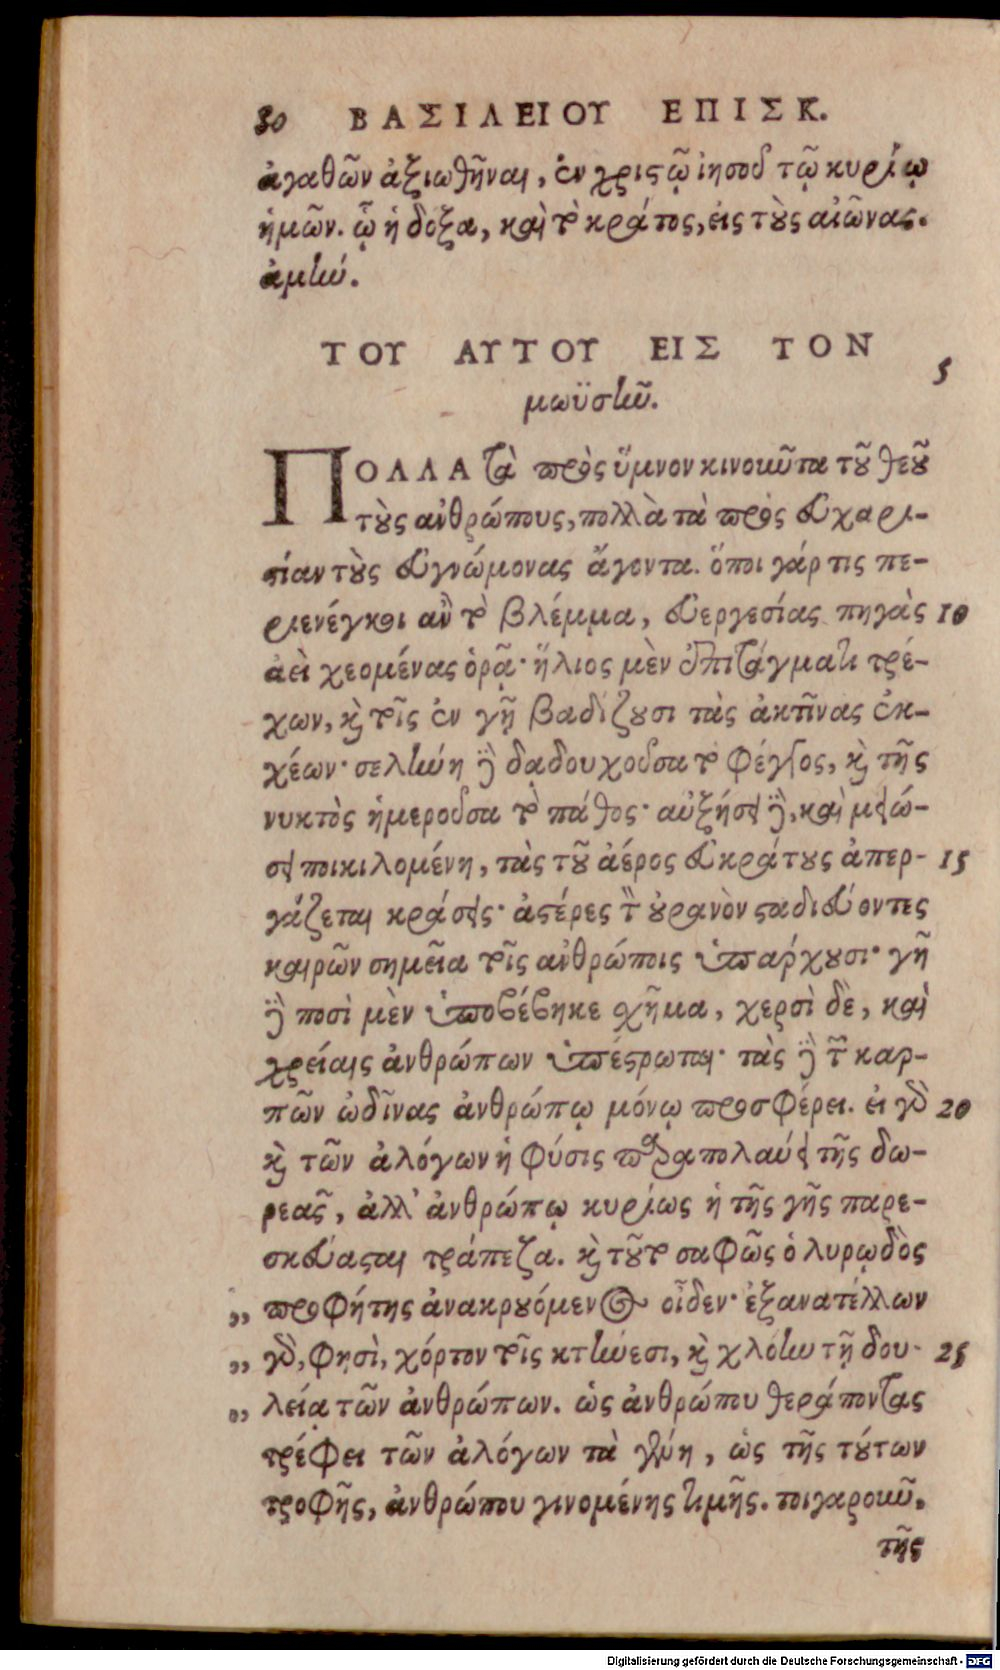 80 ΒΑΣΙΛΕΙΟΥ ΕΠΙΣΚ.
ἀγαθῶν ἀξιωθῆναι, ἐν χριστῷ ἰησοῦ τῷ κυρίῳ
ἡμῶν. ᾧ ἡ δόξα, καὶ τὸ κράτος, εἰς τοὺς αἰῶνας.
ἀμήν.
ΤΟΥ ΑΥΤΟΥ ΕΙΣ ΤΟΝ
5
μωϋσῆν.
ΠΟΛΛΑ τὰ πρὸς ὕμνον κινοῦντα τοῦ θεοῦ
τοὺς ἀνθρώπους, πολλὰ τὰ πρὸς εὐχαρι-
στίαν τοὺς εὐγνώμονας ἄγοντα. ὅποι γάρ τις πε-
ριενέγκοι ἂν τὸ βλέμμα, εὐεργεσίας πηγὰς 10
ἀεὶ χεομένας ὁρᾷ· ἥλιος μὲν ἐπιτάγματι τρέ-
χων, καὶ τοῖς ἐν γῇ βαδίζουσι τὰς ἀκτῖνας ἐκ-
χέων· σελήνη δὲ δᾳδουχοῦσα τὸ φέγγος, καὶ τῆς
νυκτὸς ἡμεροῦσα τὸ πάθος· αὐξήσει δὲ, καὶ μειώ-
σει ποικιλομένη, τὰς τοῦ ἀέρος εὐκράτους ἀπερ- 15
γάζεται κράσεις· ἀστέρες τὸν οὐρανὸν σταδιεύοντες
καιρῶν σημεῖα τοῖς ἀνθρώποις ὑπάρχουσι· γῆ
δὲ ποσὶ μὲν ὑποβέβηκε σχῆμα, χερσὶ δὲ, καὶ
χρείαις ἀνθρώπων ὑπέστρωται· τὰς δὲ τῶν καρ-
πῶν ὠδῖνας ἀνθρώπῳ μόνῳ προσφέρει. εἰ γὰρ 20
καὶ τῶν ἀλόγων ἡ φύσις παραπολαύει τῆς δω-
ρεᾶς, ἀλλ' ἀνθρώπῳ κυρίως ἡ τῆς γῆς παρε-
σκεύασται τράπεζα. καὶ τοῦτο σαφῶς ὁ λυρῳδὸς
„ προφήτης ἀνακρουόμενος οἶδεν· ἐξανατέλλων
„ γὰρ, φησὶ, χόρτον τοῖς κτήνεσι, καὶ χλόην τῇ δου- 25
„ λείᾳ τῶν ἀνθρώπων. ὡς ἀνθρώπου θεράποντας
τρέφει τῶν ἀλόγων τὰ γένη, ὡς τῆς τούτων
τροφῆς, ἀνθρώπου γινομένης τιμῆς. τοιγαροῦν.
τῆς
Digitalisierung gefördert durch die Deutsche Forschungsgemeinschaft - DFG